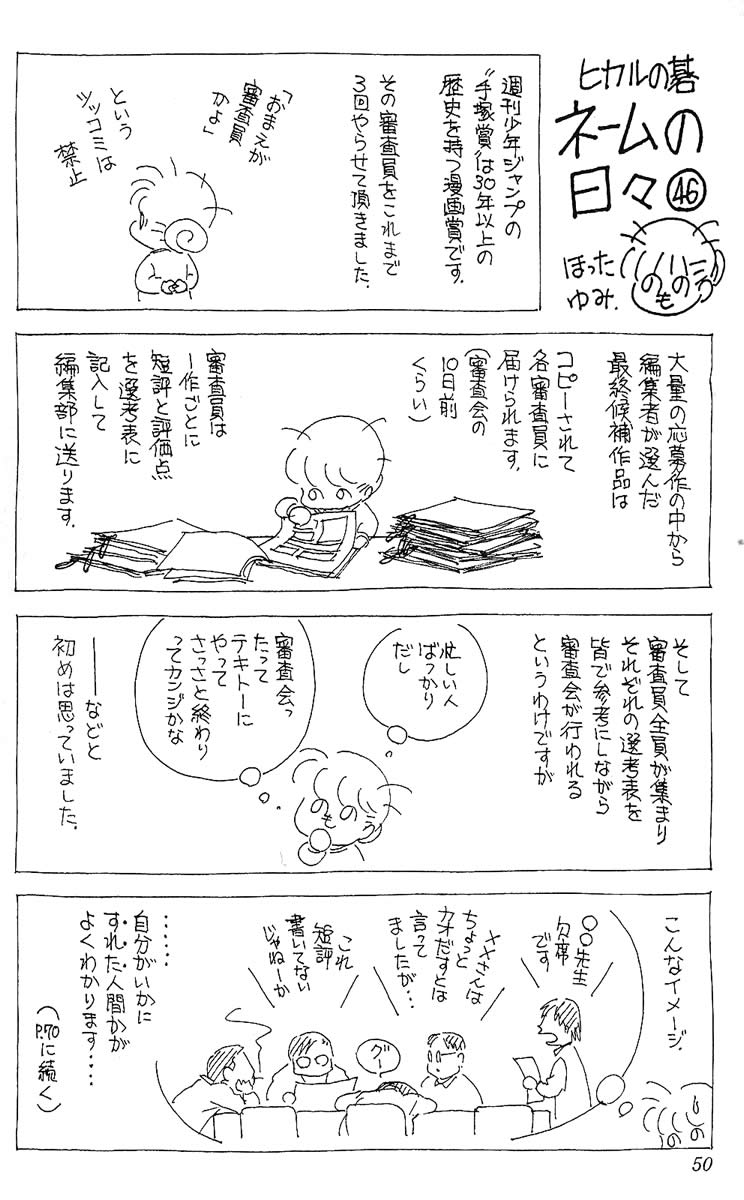 ヒカルの碁
ネームの
日々㊻
ほった
ゆみ.
週刊少年ジャンプの
〝手塚賞〟は30年以上の
歴史を持つ漫画賞です.
その審査員をこれまで
3回やらせて頂きました.
「おまえが
審査員
かよ」
という
ツッコミは
禁止
大量の応募作の中から
編集者が選んだ
最終候補作品は
コピーされて
各審査員に
届けられます.
(審査会の
10日前
くらい)
審査員は
一作ごとに
短評と評価点
を選考表に
記入して
編集部に送ります.
そして
審査員全員が集まり
それぞれの選考表を
皆で参考にしながら
審査会が行われる
というわけですが
忙しい人
ばっかり
だし
審査会っ
たって
テキトーに
やって
さっさと終わり
ってカンジかな
――などと
初めは思っていました.
こんなイメージ.
○○先生
欠席
です
××さんは
ちょっと
カオだすとは
言って
ましたが…
これ
短評
書いてない
じゃねーか
グー
……
自分がいかに
すれた人間かが
よくわかります….
(P.70に続く)
50